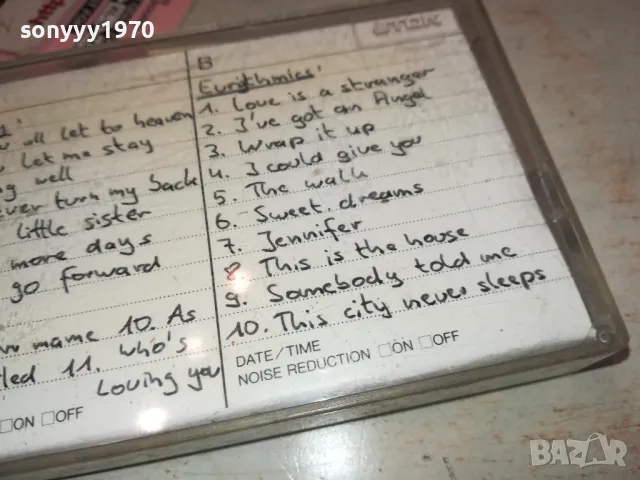 sonyyy1970
TDK
B
Eurithmics'
1. Love is a stranger
2. I've got an Angel
3. Wrap it up
4. I could give you
5. The walk
6. Sweet dreams
7. Jennifer
8. This is the house
9. Somebody told me
10. This city never sleeps
DATE/TIME
NOISE REDUCTION □ON □OFF
all let to heaven
let me stay
well
turn my back
little sister
more days
go forward
name 10. As
11. who's
Loving you
□ON □OFF
BAZAR
bg